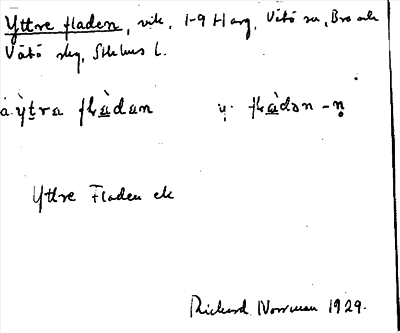 Yttre fladen, vik, 1-9 Harg, Vätö sn, Bro och
Vätö skg, Sthlms l.
a. ỳtra flàdan y. flàdən -n̥
Yttre Fladen ek
Rickard Norrman 1929.